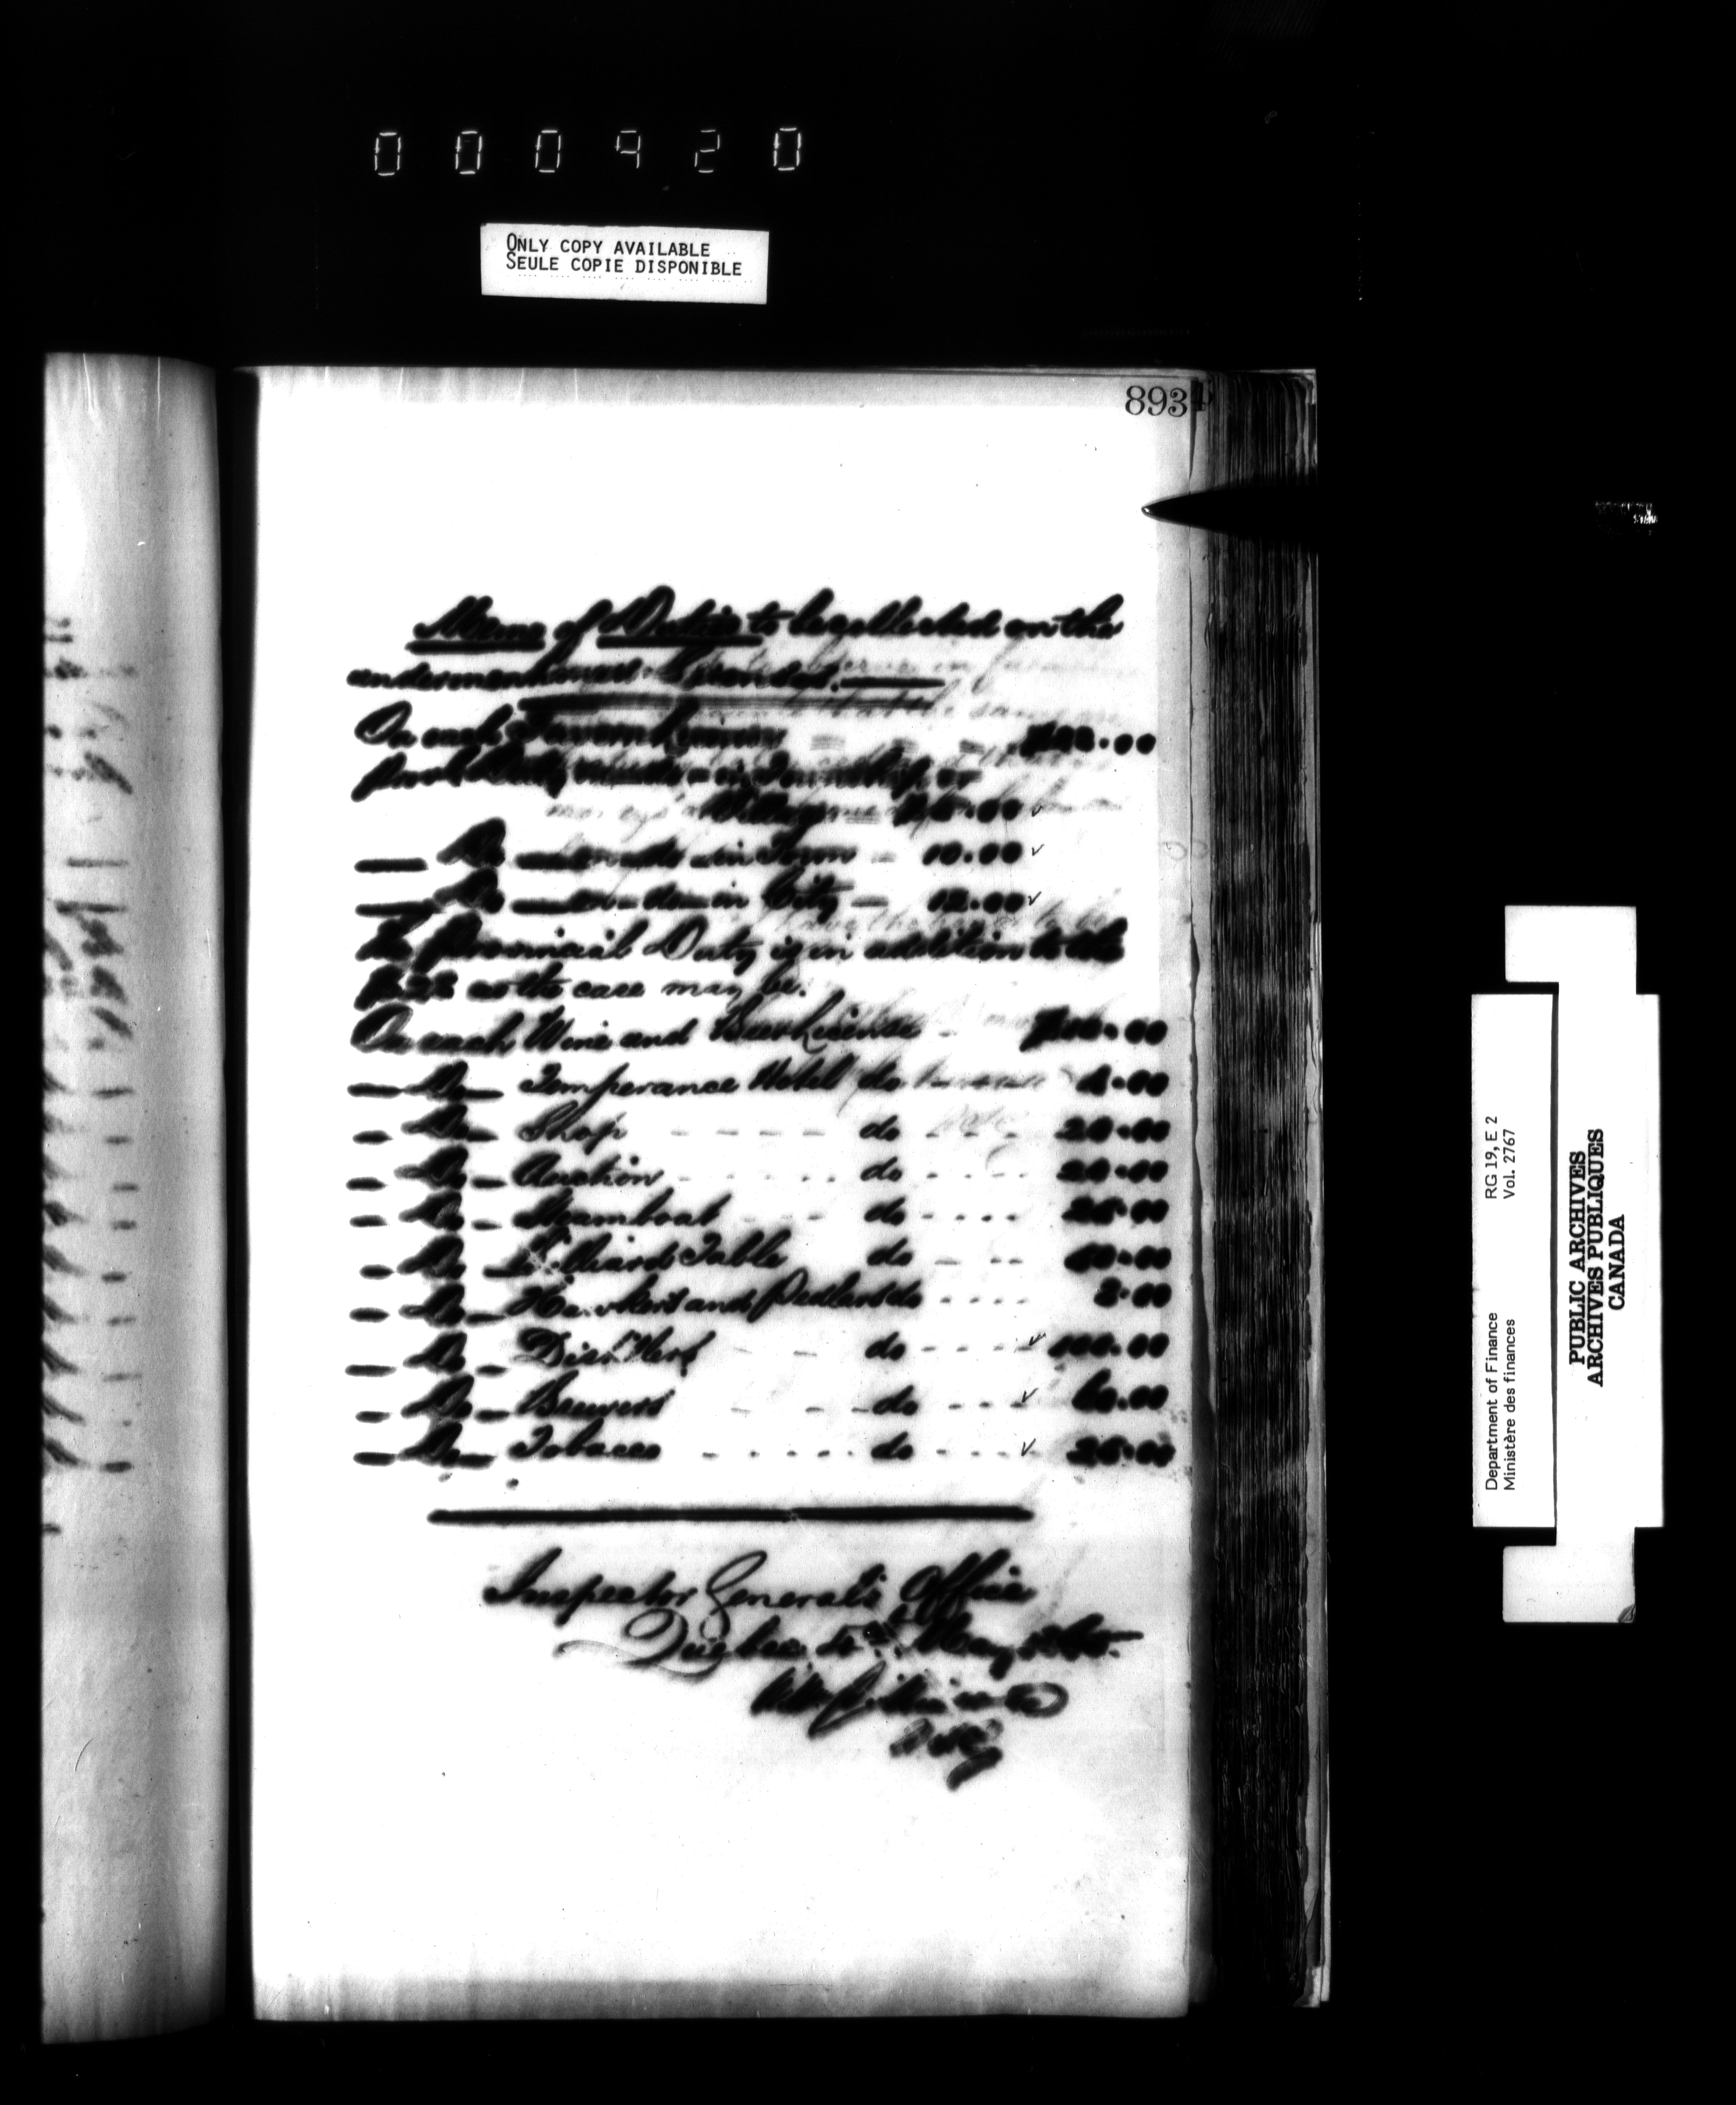 000920
ONLY COPY AVAILABLE
SEULE COPIE DISPONIBLE
893
Memo of Duties to be collected on the
undermentioned Licenses.
On each Tavern License
Provl Duty outside in Township or
Village 6.00
Do do in Town 10.00
Do do in City 12.00
The Provincial Duty is in addition to the
as the case may be.
On each Wine and Beer License
Do Temperance Hotel do 4.00
Do Shop do 20.00
Do Auction do 20.00
Do Steamboat do 26.00
Do Billiard Table do 40.00
Do Hawkers and Pedlars do 8.00
Do Distillers do 100.00
Do Brewers do 60.00
Do Tobacco do 26.00
Inspector General's Office
Quebec May
Department of Finance RG 19, E 2
Ministère des finances Vol. 2767
PUBLIC ARCHIVES
ARCHIVES PUBLIQUES
CANADA